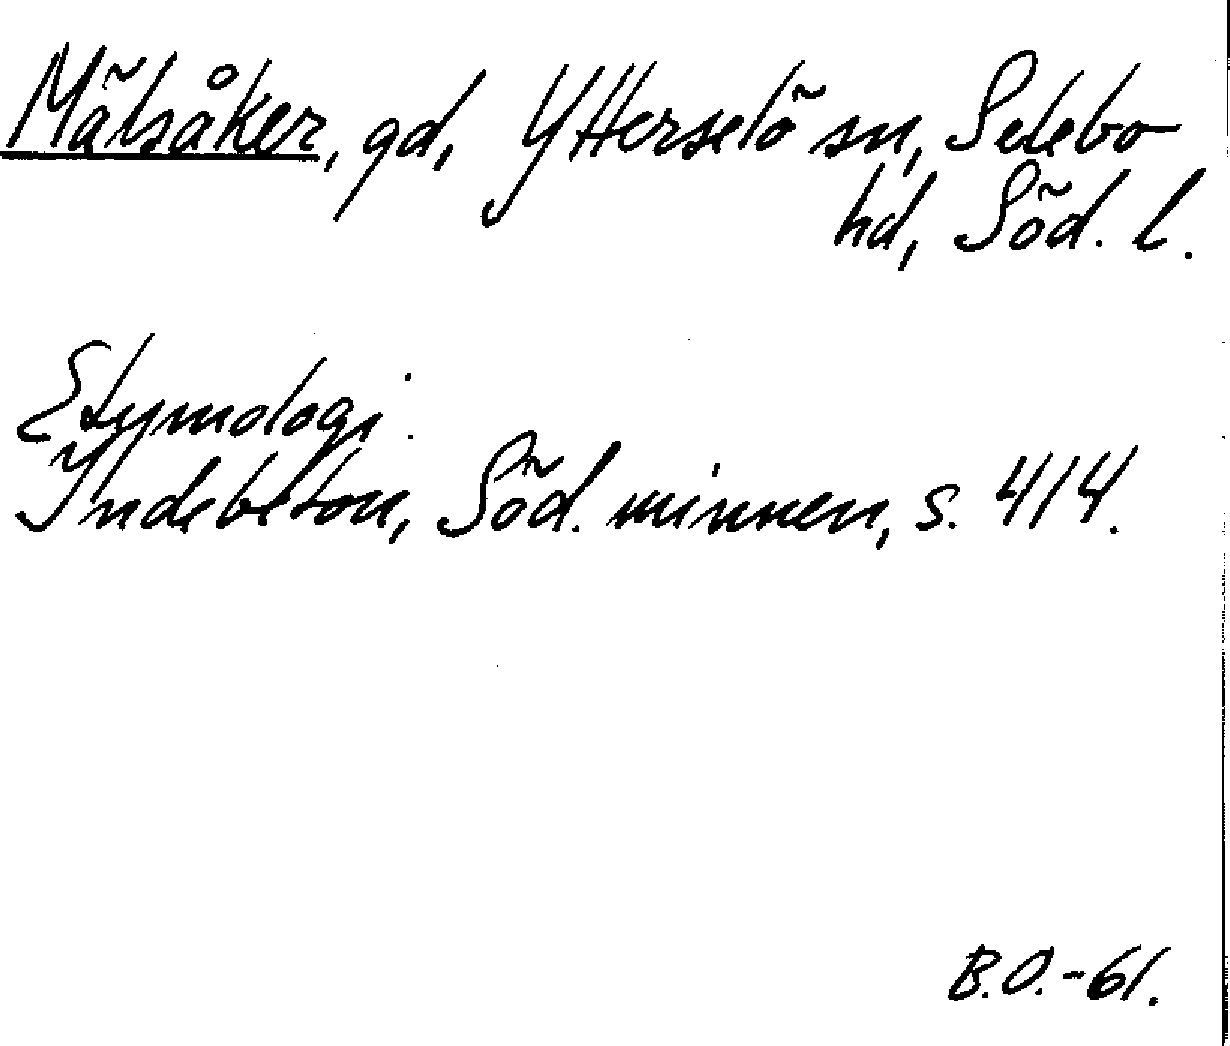 Mälsåker, gd, Ytterselö sn, Selebo
hd, Söd. l.
Etymologi:
Indebetou, Söd. minnen, s. 414.
B.O.-61.